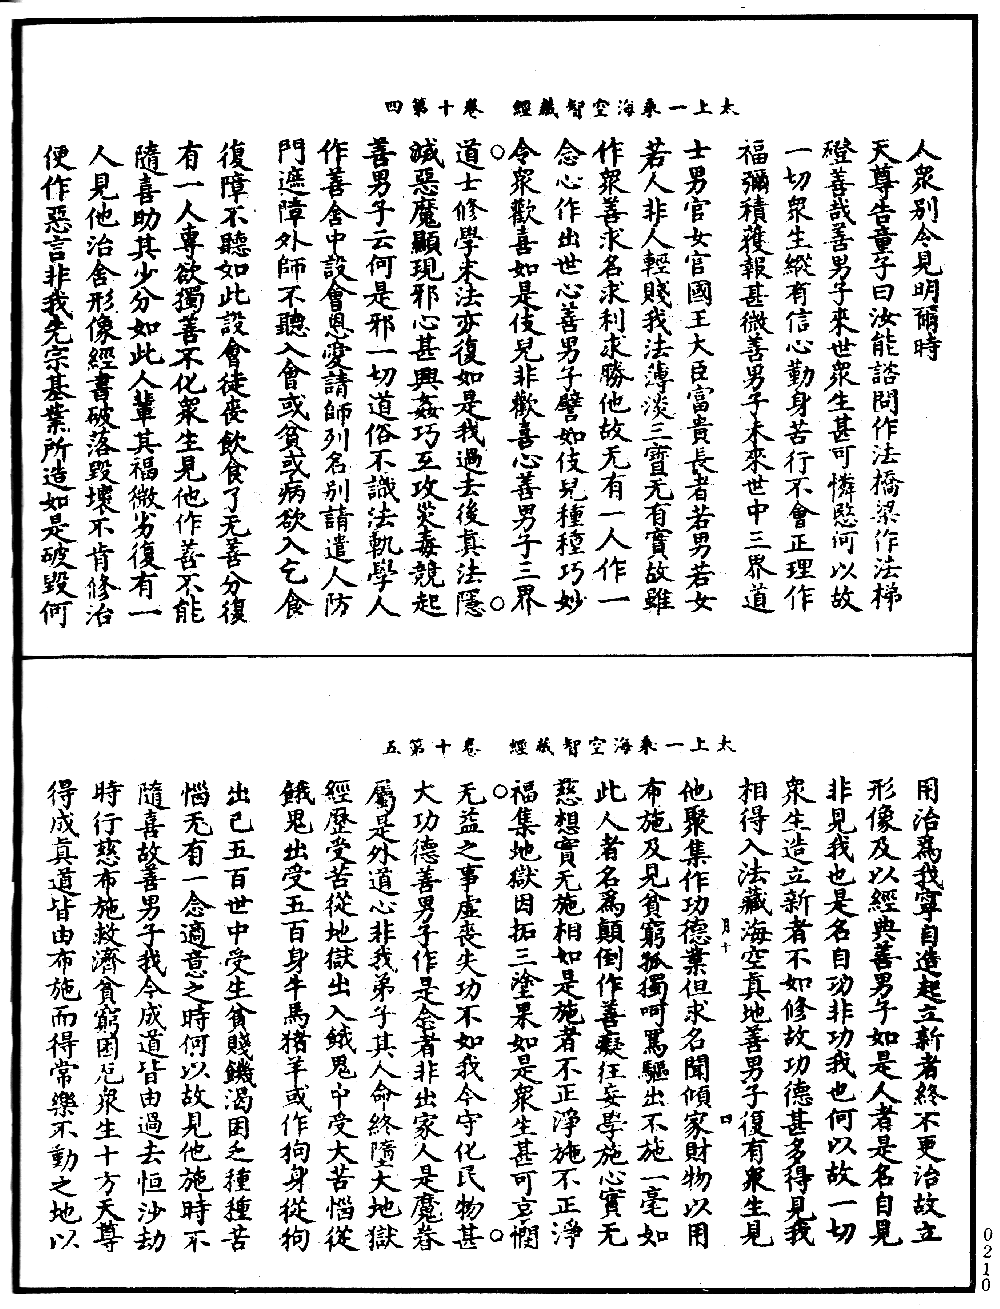 太上一乘海空智藏經　卷十第四
人眾別令見明爾時
天尊告童子曰汝能諮問作法橋梁作法梯
磴善哉善男子來世眾生甚可憐愍何以故
一切眾生縱有信心勤身苦行不會正理作
福彌積獲報甚微善男子未來世中三界道
士男官女官國王大臣富貴長者若男若女
若人非人輕賤我法薄淡三寶无有實故雖
作眾善求名求利求勝他故无有一人作一
念心作出世心善男子譬如伎兒種種巧妙
令眾歡喜如是伎兒非歡喜心善男子三界
道士修學末法亦復如是我過去後真法隱
滅惡魔顯現邪心甚興姦巧互攻災毒競起
善男子云何是邪一切道俗不識法軌學人
作善舍中設會恩愛請師列名別請遣人防
門遮障外師不聽入會或貧或病欲入乞食
復障不聽如此設會徒喪飲食了无善分復
有一人專欲獨善不化眾生見他作善不能
隨喜助其少分如此人輩其福微劣復有一
人見他治舍形像經書破落毀壞不肯修治
便作惡言非我先宗基業所造如是破毀何
太上一乘海空智藏經　卷十第五
用治為我寧自造起立新者終不更治故立
形像及以經典善男子如是人者是名自見
非見我也是名自功非功我也何以故一切
眾生造立新者不如修故功德甚多得見我
相得入法藏海空真地善男子復有眾生見
月十　四
他聚集作功德業但求名聞傾家財物以用
布施及見貧窮孤獨呵罵驅出不施一毫如
此人者名為顛倒作善癡狂妄學施心實无
慈想實无施相如是施者不正淨施不正淨
福集地獄因拓三塗果如是眾生甚可哀憫
无益之事虛喪失功不如我今守化民物甚
大功德善男子作是念者非出家人是魔眷
屬是外道心非我弟子其人命終墮大地獄
經歷受苦從地獄出入餓鬼中受大苦惱從
餓鬼出受五百身牛馬猪羊或作狗身從狗
出已五百世中受生貧賤饑渴困乏種種苦
惱无有一念適意之時何以故見他施時不
隨喜故善男子我今成道皆由過去恒沙劫
時行慈布施救濟貧窮困厄眾生十方天尊
得成真道皆由布施而得常樂不動之地以
0210